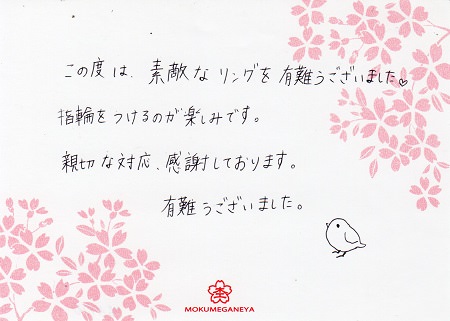 この度は、素敵なリングを有難うございました♡
指輪をつけるのが楽しみです。
親切な対応、感謝しております。
有難うございました。
MOKUMEGANEYA